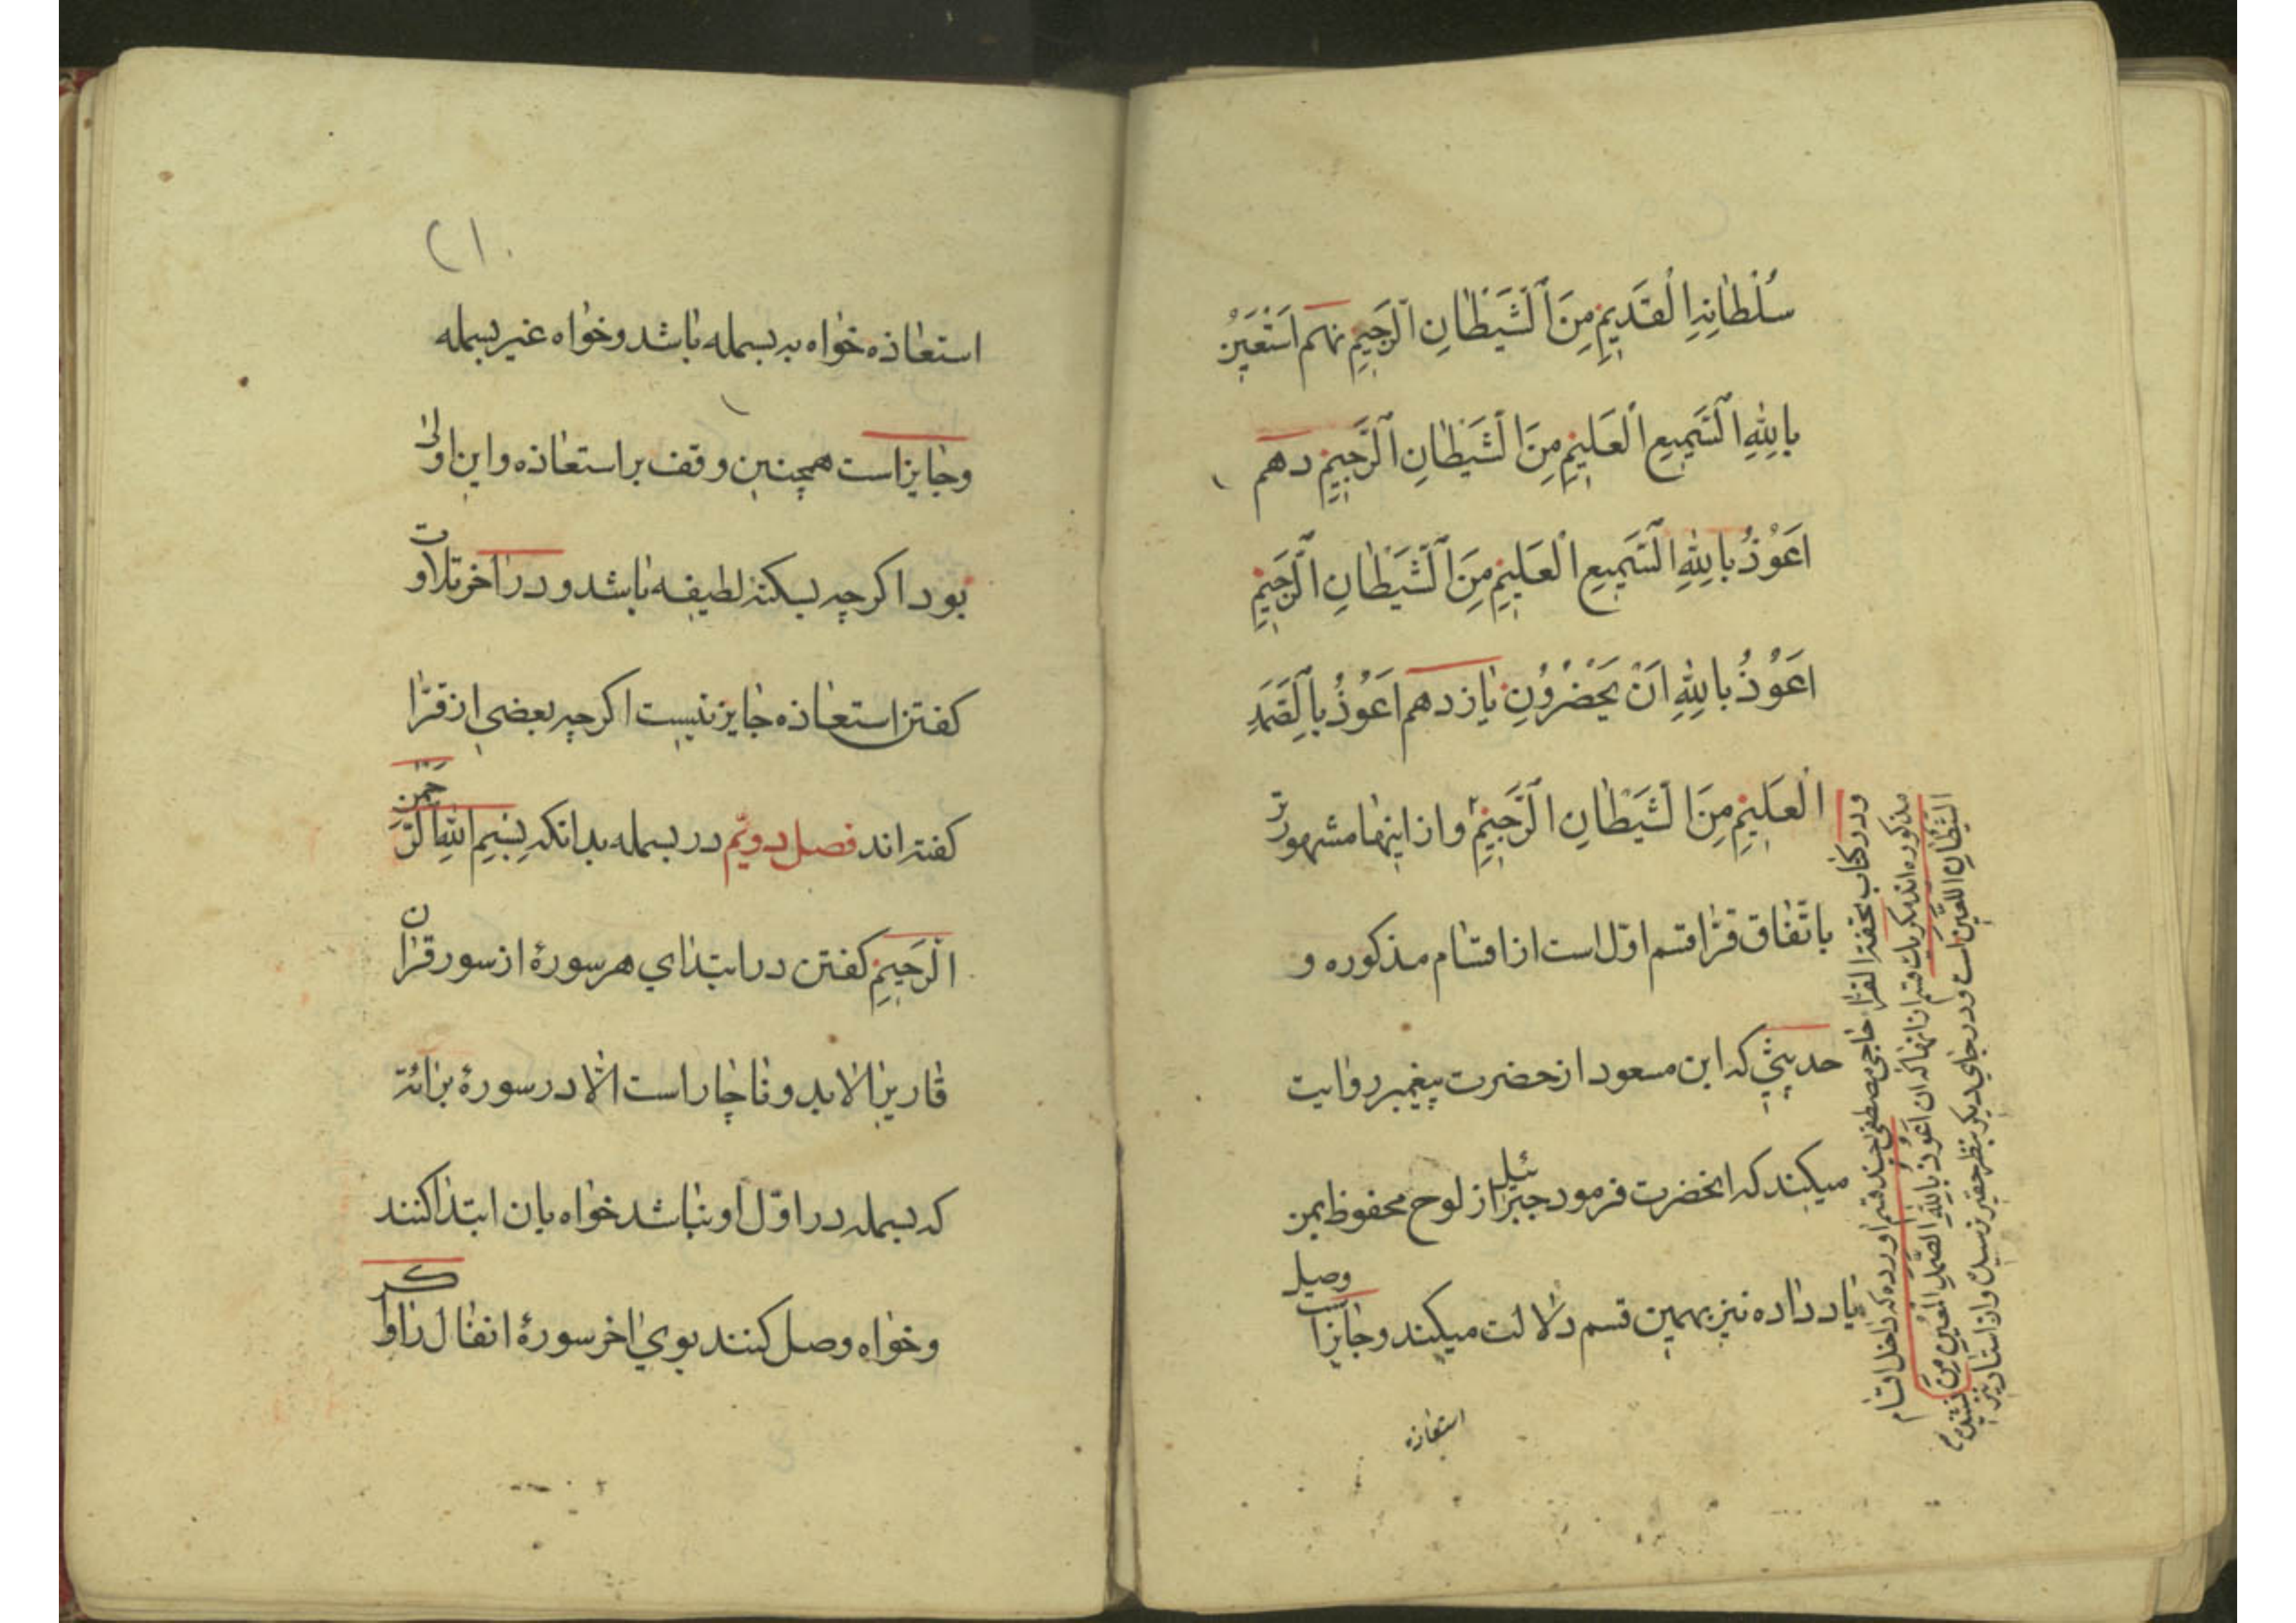 سُلْطَانِهِ الْقَدِيمِ مِنَ الشَّيْطَانِ الرَّجِيمِ نهم اَسْتَعِينُ
بِاللهِ السَّمِيعِ الْعَلِيمِ مِنَ الشَّيْطَانِ الرَّجِيمِ دهم
اَعُوْذُ بِاللهِ السَّمِيعِ الْعَلِيمِ مِنَ الشَّيْطَانِ الرَّجِيمِ
اَعُوْذُ بِاللهِ اَنْ يَحْضُرُونِ یازدهم اَعُوْذُ بِالصَّمَدِ
الْعَلِيمِ مِنَ الشَّيْطَانِ الرَّجِيمِ و از اینها مشهورتر
باتّفاق قرّا قسم اوّل است از اقسام مذکوره و
حدیثی که ابن مسعود از حضرت پیغمبر روایت
میکند که انحضرت فرمود جبرائیل از لوح محفوظ بمن
یاد داده نیز بهمین قسم دلالت میکند و جایز است وصل
استعاذه
و در کتاب تحفة القرّا حاجی مصطفی چند قسم اورده که داخل اقسام
مذکوره اند مکر یك قسم از انها که ان اَعُوذُ بِاللهِ الصَّمَدِ الْمُعِينِ مِنَ
الشَّيْطَانِ اللَّعِينِ است و در جای دیکر بنظر حقیر نرسیده و از استاد نیز
نشنیده
۱۰
استعاذه خواه به بسمله باشد و خواه غیر بسمله
و جایز است همچنین وقف بر استعاذه و این اولی
بود اکرچه بسکتهٔ لطیفه باشد و در اخر تلاوت
کفتن استعاذه جایز نیست اکرچه بعضی از قرّا
کفته اند فصل دویّم در بسمله بدانکه بِسْمِ اللهِ الرَّحْمنِ
الرَّحِيمِ کفتن در ابتدای هر سورهٔ از سور قران
قاری را لابد و ناچار است الّا در سورهٔ برائة
که بسمله در اوّل او نباشد خواه بان ابتدا کنند
و خواه وصل کنند بوی اخر سورهٔ انفال را و اکر